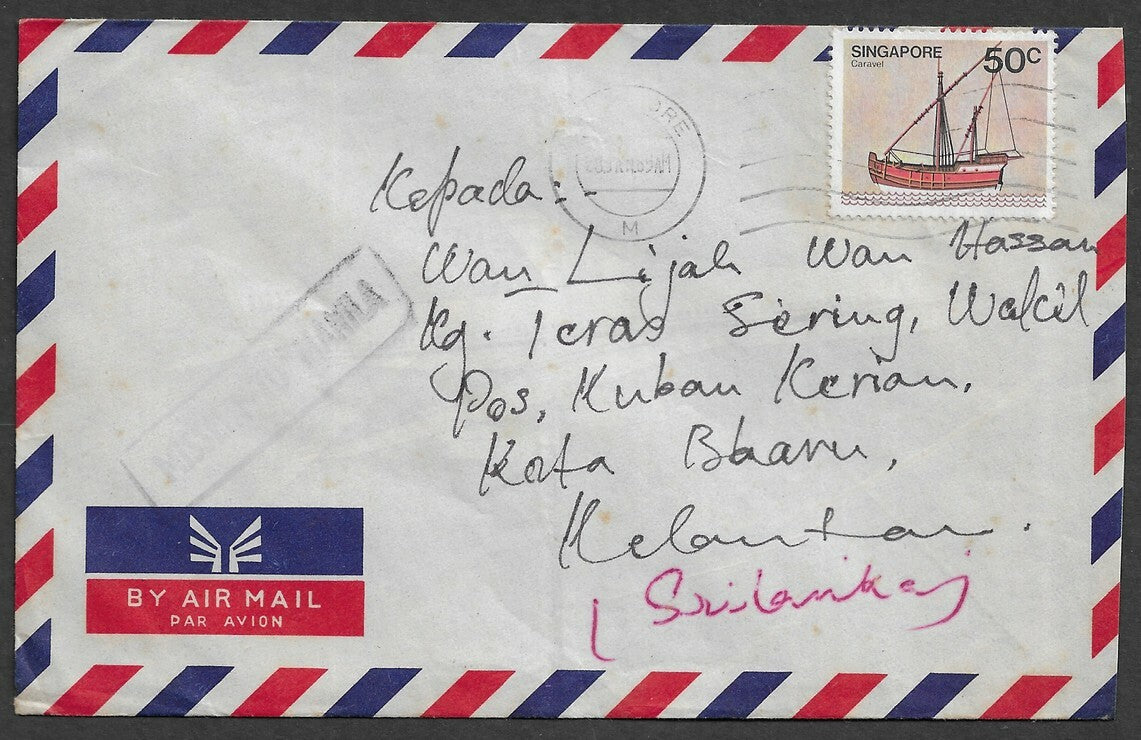 SINGAPORE 50C
Caravel
ORE
M
Kepada:-
Wan Lijah Wan Hassan
Kg. Teras Sering, Wakil
Pos, Kuban Kerian,
Kota Bharu,
Kelantan.
(Srilanka)
MANILA
BY AIR MAIL
PAR AVION